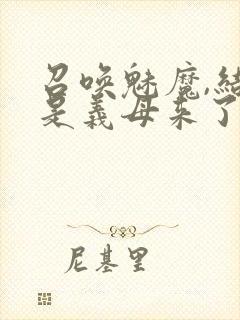 召唤魅魔,结
是義母来了
尼基里